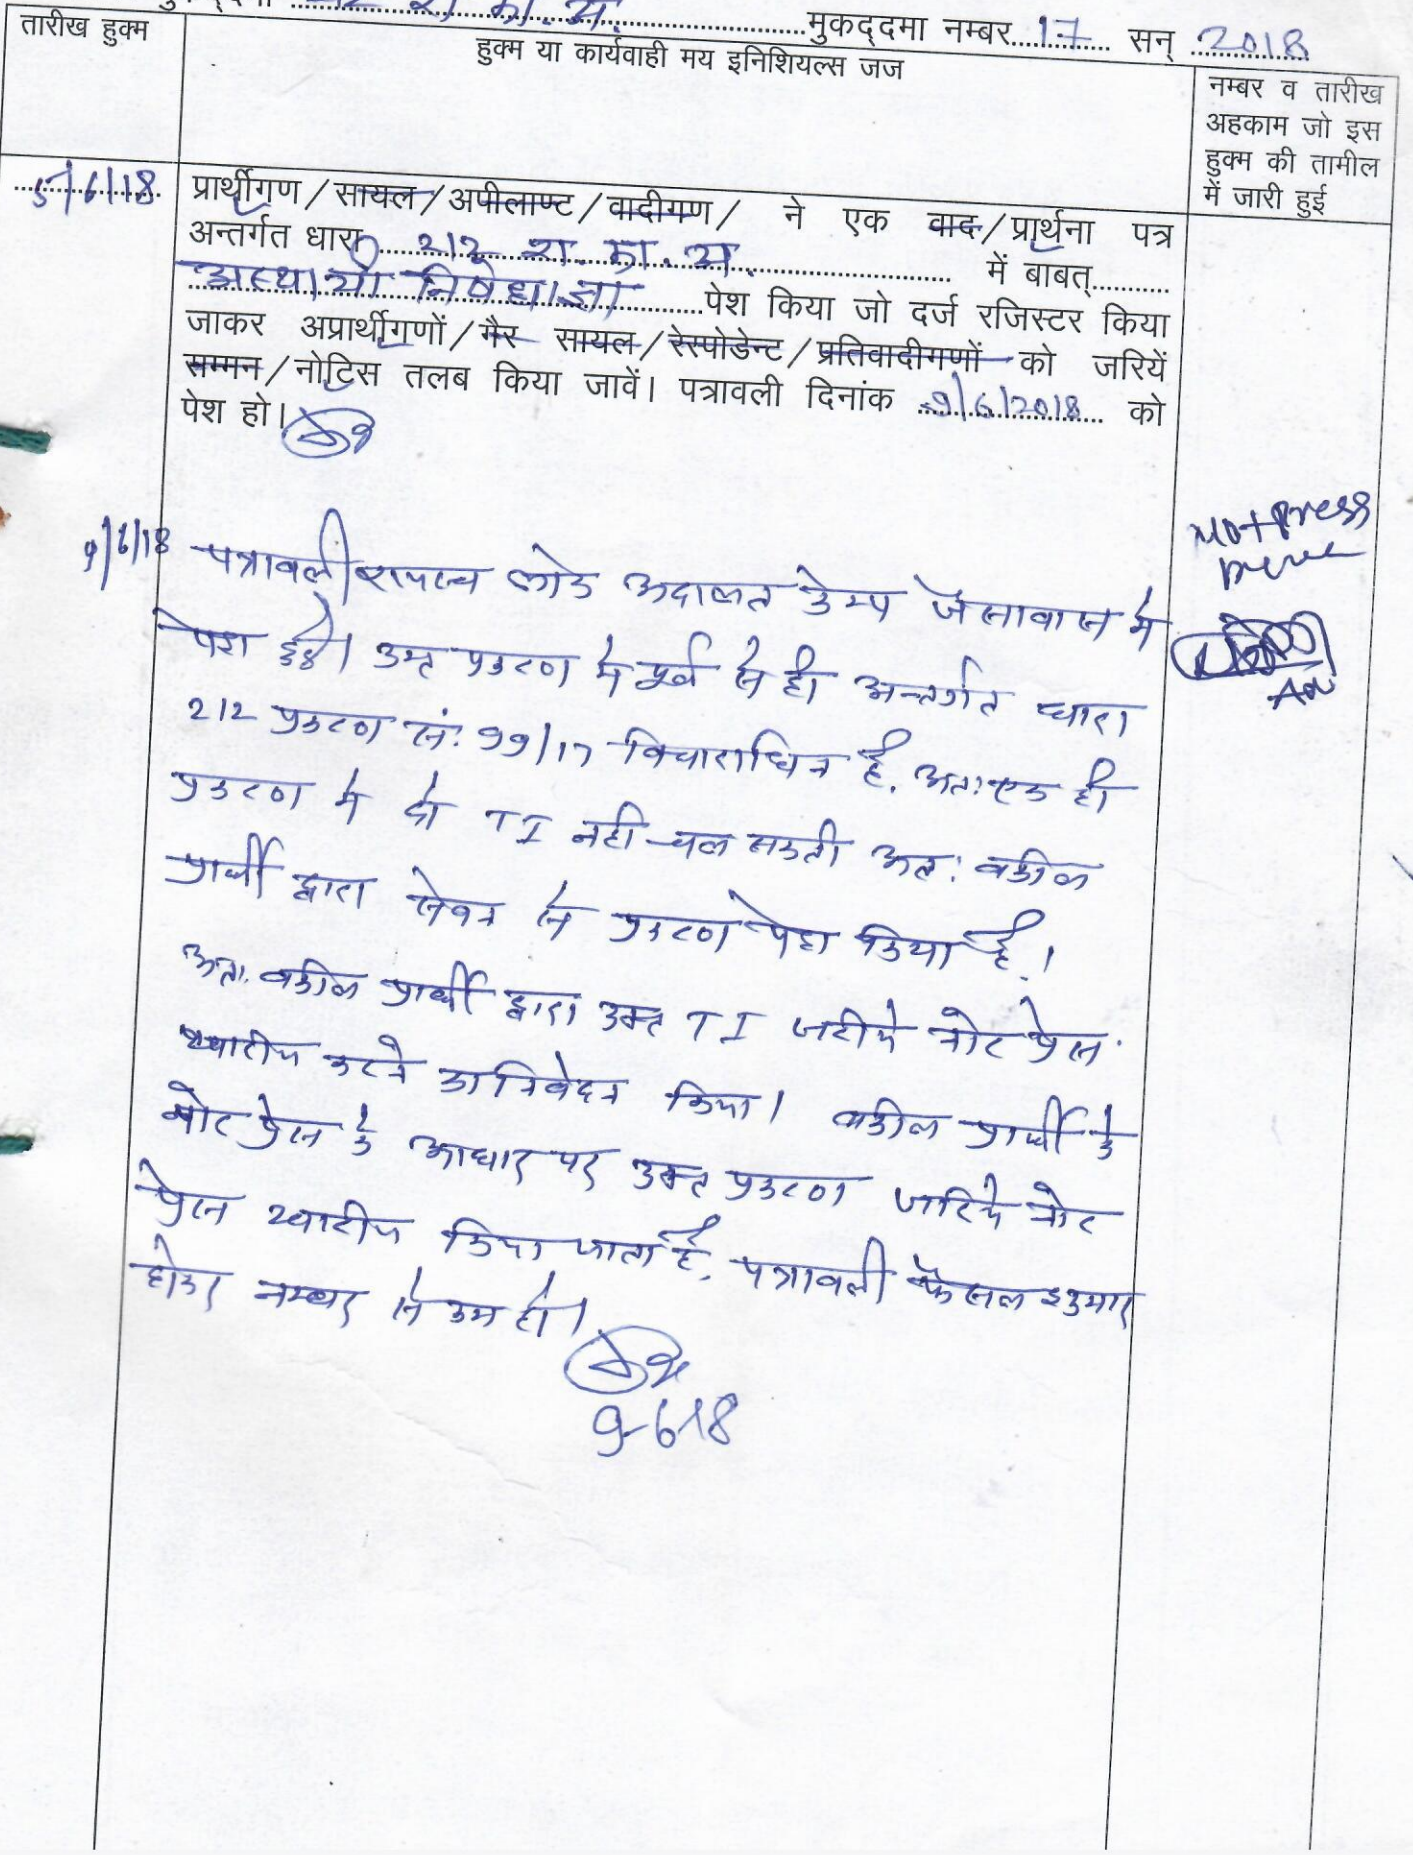 212 रा. का. अ. मुकद्दमा नम्बर 17 सन् 2018
तारीख हुक्म
हुक्म या कार्यवाही मय इनिशियल्स जज
नम्बर व तारीख
अहकाम जो इस
हुक्म की तामील
में जारी हुई
5/6/18 प्रार्थीगण / सायल / अपीलाण्ट / वादीगण / ने एक वाद / प्रार्थना पत्र
अन्तर्गत धारा 212 रा. का. अ. में बाबत्
अस्थायी निषेधाज्ञा पेश किया जो दर्ज रजिस्टर किया
जाकर अप्रार्थीगणों / गैर सायल / रेस्पोडेन्ट / प्रतिवादीगणों को जरियें
सम्मन / नोटिस तलब किया जावें। पत्रावली दिनांक 9/6/2018 को
पेश हो।
9/6/18 पत्रावली राजस्व लोक अदालत केम्प जैसावास में
पेश हुई। उक्त प्रकरण में पूर्व से ही अन्तर्गत धारा
212 प्रकरण सं. 99/17 विचाराधिन है. अतः एक ही
प्रकरण में दो TI नही चल सकती अतः वकील
प्रार्थी द्वारा से प्रकरण पेश किया है।
अतः वकील प्रार्थी द्वारा उक्त TI जरीये नोट प्रेस
खारीज करने का निवेदन किया। वकील प्रार्थी के
नोट प्रेस के आधार पर उक्त प्रकरण जरिये नोट
प्रेस खारीज किया जाता है. पत्रावली फैसल शुमार
होकर नम्बर से कम हो।
9-6-18
Not press